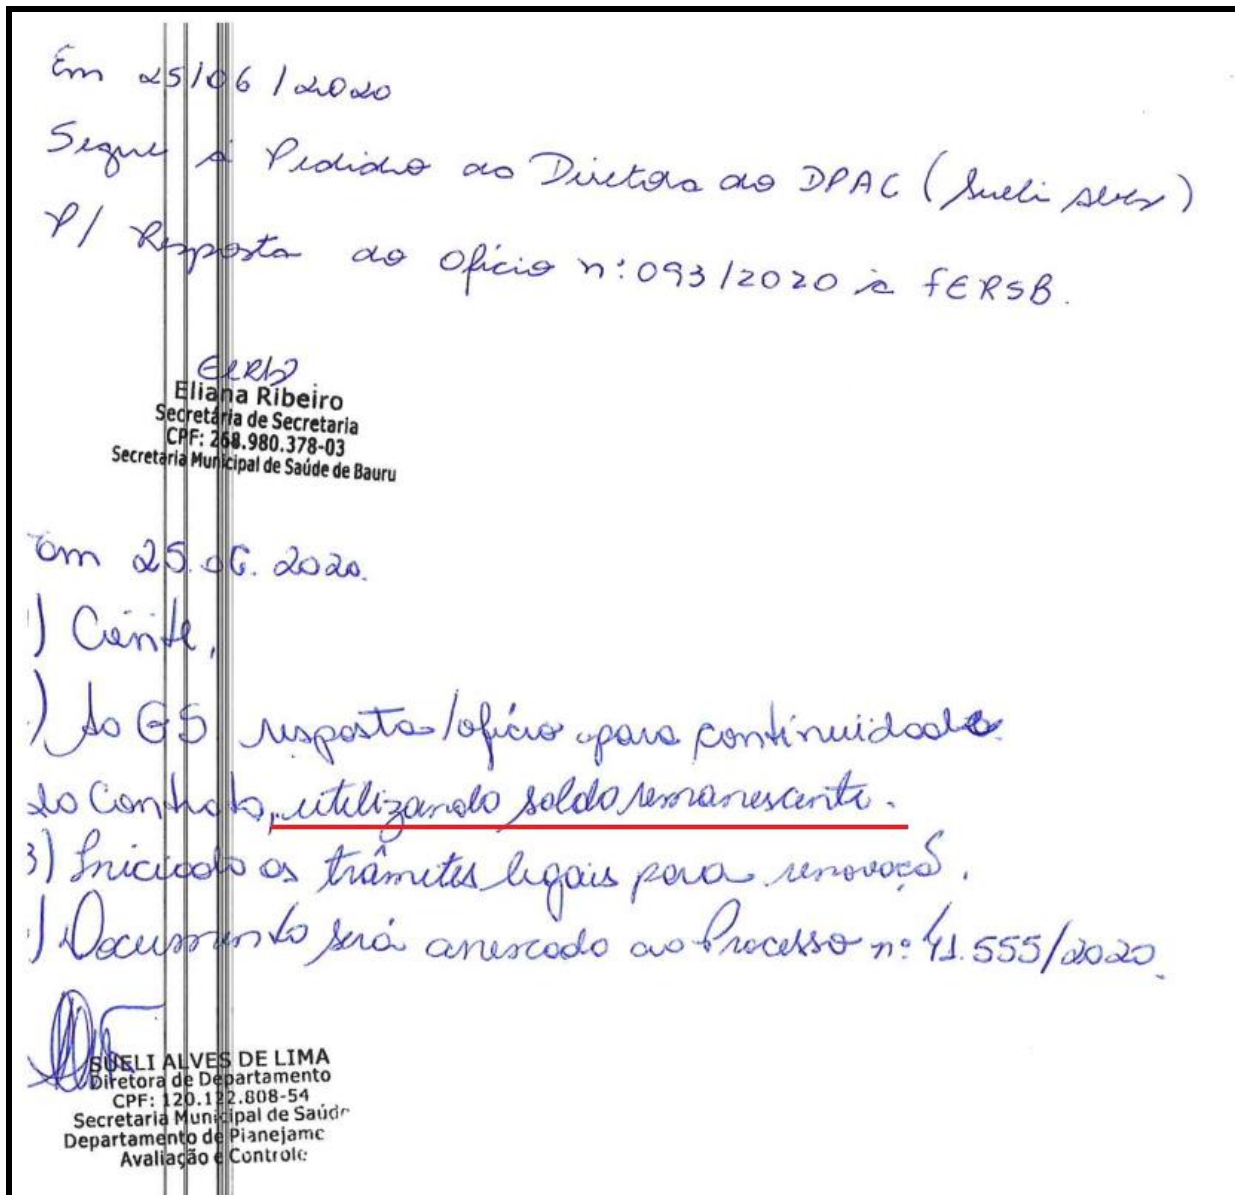 Em 25/06/2020
Segue à Pedido do Diretora do DPAC (Sueli Alves)
P/ Resposta do Ofício nº: 093/2020 à fERSB.
Eliana Ribeiro
Secretária de Secretaria
CPF: 268.980.378-03
Secretaria Municipal de Saúde de Bauru
Em 25.06.2020.
) Ciente,
) Ao GS resposta/ofício para continuidade
do Contrato, utilizando saldo remanescente.
3) Iniciado os trâmites legais para renovaçõ.
) Documento será anexado ao Processo nº: 41.555/2020.
SUELI ALVES DE LIMA
Diretora de Departamento
CPF: 120.122.808-54
Secretaria Municipal de Saúde
Departamento de Planejame
Avaliação e Controle